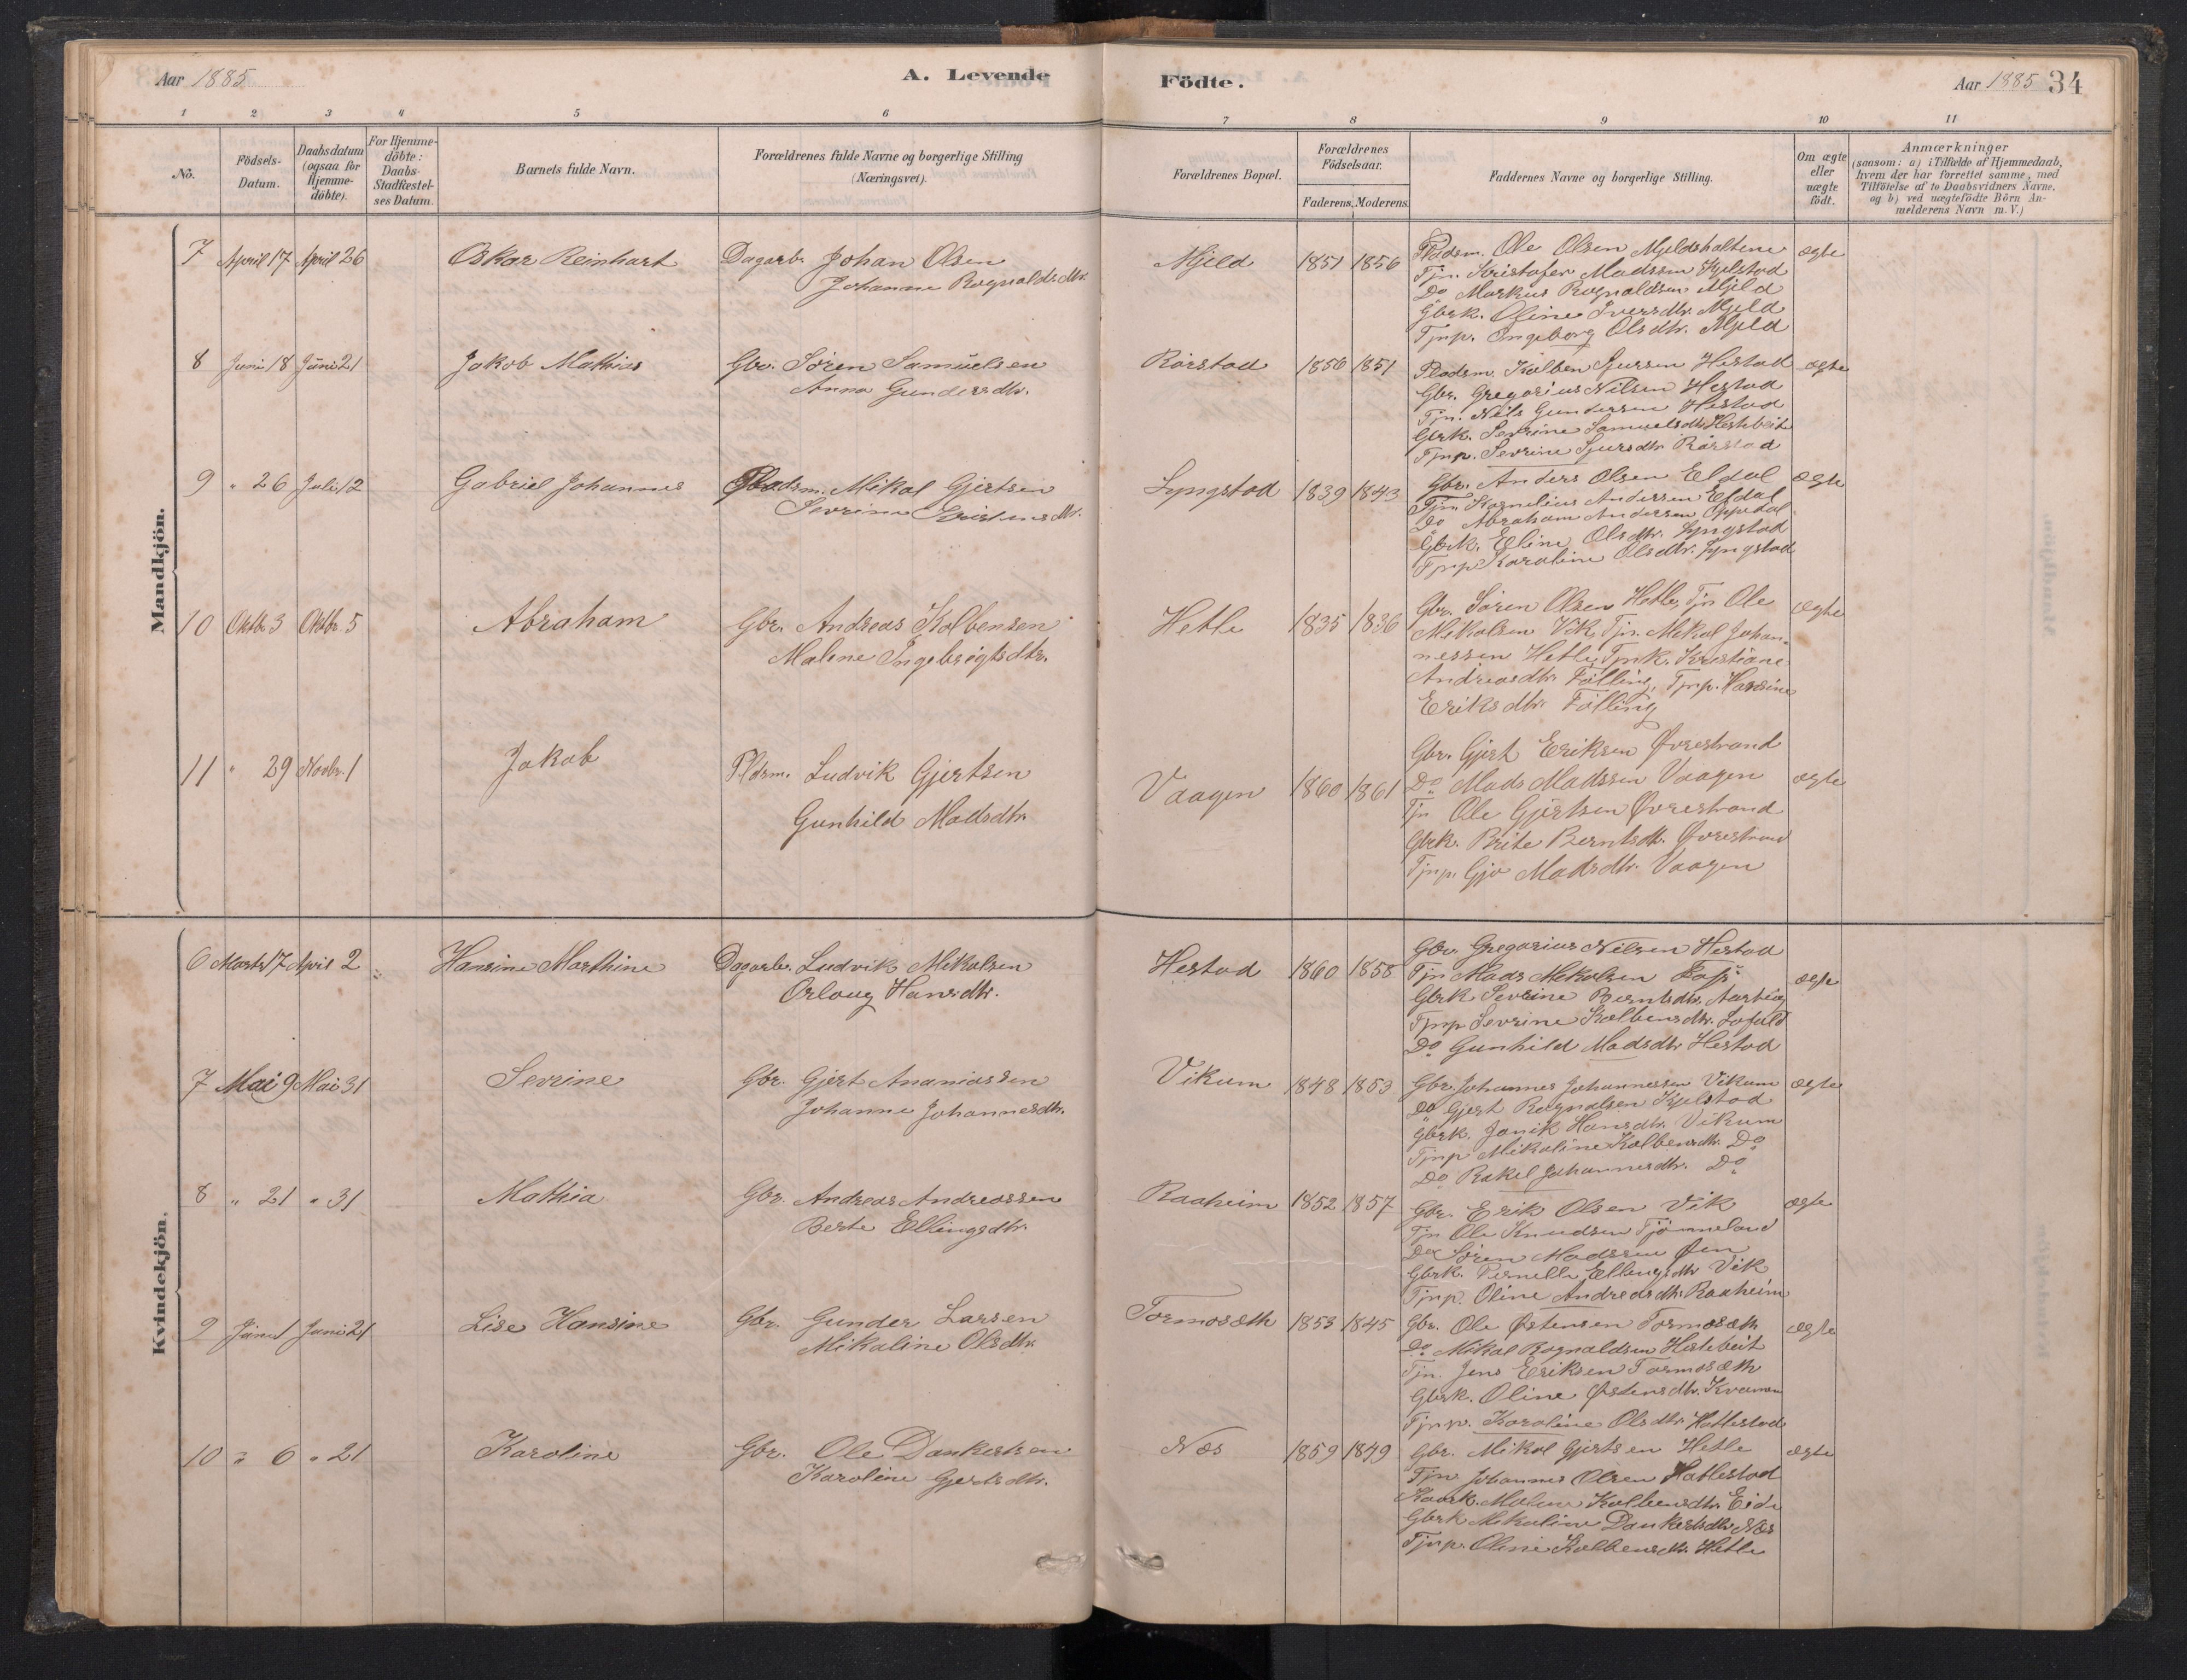 Aar 1885
A. Levende
Födte.
Aar 1885 34
1 2 3 4 5 6 7 8 9 10 11
No.
Födsels-Datum.
Daabsdatum (ogsaa for Hjemme-döbte).
For Hjemme-döbte: Daabs-Stadfæstel-ses Datum.
Barnets fulde Navn.
Forældrenes fulde Navne og borgerlige Stilling (Næringsvei).
Forældrenes Bopæl.
Forældrenes Födselsaar.
Faderens. Moderens.
Faddernes Navne og borgerlige Stilling.
Om ægte eller uægte födt.
Anmærkninger
(saasom: a) i Tilfælde af Hjemmedaab,
hvem der har forrettet samme, med
Tilföielse af to Daabsvidners Navne.
og b) ved uægtefödte Börn An-
melderens Navn m. V.)
Mandkjön.
7 April 17 April 26 Oskar Reinhart Dagarb. Johan Olsen
Johanne Rognaldsdtr.
Mjeld 1851 1856 Pladsm. Ole Olsen Mjeldsholtene ægte
Tjn. Kristofer Madssen Kjelstad
Do Markus Rognaldsen Mjeld
Gbrk. Oline Iversdtr. Mjeld
Tjnp. Ingeborg Olsdtr. Mjeld
8 Juni 8 Juni 21 Jakob Mathias Gbr. Sören Samuelsen
Anna Gundersdtr.
Rörstad 1856 1851 Pladsm. Kolben Sjursen Hestad ægte
Gbr. Gregorius Nilsen Hestad
Tjn. Nils Gundersen Hestad
Gbrk. Sevrine Samuelsdtr Hestebeit
Tjnp. Sevrine Sjursdtr Rörstad
9 " 26 Juli 12 Gabriel Johannes Pladsm. Mikal Gjertsen
Sevrine Kristensdtr.
Lyngstad 1839 1843 Gbr. Anders Olsen Eldal ægte
Tjn Kornelius Andersen Eldal
Do Abraham Andersen Oppedal
Gbrk. Eline Olsdtr. Lyngstad
Tjnp Karoline Olsdtr. Lyngstad
10 Oktbr 3 Oktbr. 5 Abraham Gbr. Andreas Kolbensen
Malene Ingebrigtsdtr.
Hetle 1835 1836 Gbr. Sören Olsen Hetle, Tjn Ole ægte
Mikalsen Vik, Tjn. Mikal Johan-
nessen Hetle, Tjnk. Kristiane
Andreasdtr Fölling, Tjnp. Hansine
Eriksdtr Fölling
11 " 29 Novbr. 1 Jakob Pldsm. Ludvik Gjertsen
Gunhild Madsdtr
Vaagen 1860 1861 Gbr. Gjert Eriksen Øvrestrand
Do Mads Madssen Vaagen ægte
Tjn Ole Gjertsen Øvrestrand
Gbrk. Brite Berntsdtr. Øvrestrand
Tjnp. Gjo Madsdtr. Vaagen
Kvindekjön.
6 Marts 17 April 2 Hansine Marthine Dagarb. Ludvik Mikalsen
Orloug Hansdtr.
Hestad 1860 1858 Gbr. Gregorius Nilsen Hestad
Tjn Mads Mikalsen ægte
Gbrk Sevrine Berntsdtr.
Tjnp Sevrine Kolbensdtr.
Do Gunhild Madsdtr Hestad
7 Mai 9 Mai 31 Sevrine Gbr. Gjert Ananiassen
Johanne Johannesdtr.
Vikum 1848 1853 Gbr. Johannes Johannessen Vikum ægte
Do Gjert Rognalsen Kjelstad
Gbrk. Janik Hansdtr. Vikum
Tjnp Mikaline Kolbensdtr. Do
Do Rakel Johannesdtr. Do
8 " 21 " 31 Mathia Gbr. Andreas Andreassen
Berte Ellingsdtr.
Raaheim 1852 1857 Gbr. Erik Olsen Vik ægte
Tjn Ole Knudsen Tjönneland
Do Sören Madssen Øen
Gbrk. Pernelle Ellingsdtr Vik
Tjnp. Oline Andreasdtr. Raaheim
9 Juni 1 Juni 21 Lise Hansine Gbr. Gunder Larsen
Mikaline Olsdtr.
Tormosæth 1853 1845 Gbr. Ole Østensen Tormosæth ægte
Do Mikal Rognaldsen Hestebeit
Tjn. Jens Eriksen Tormosæth
Gbrk. Oline Østensdtr. Kvammen
Tjnp. Karoline Olsdtr Hatlestad
10 " 6 " 21 Karoline Gbr. Ole Dankertsen
Karoline Gjertsdtr.
Næs 1859 1849 Gbr. Mikal Gjertsen Hetle ægte
Tjn Johannes Olsen Hatlestad
Malene Kolbensdtr. Eide
Gbrk Mikaline Dankertsdtr Næs
Tjnp. Oline Kolbensdtr. Hetle